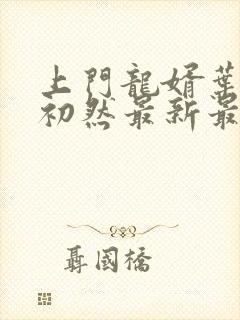 上門龍婿葉
初然最新最
聶國橋